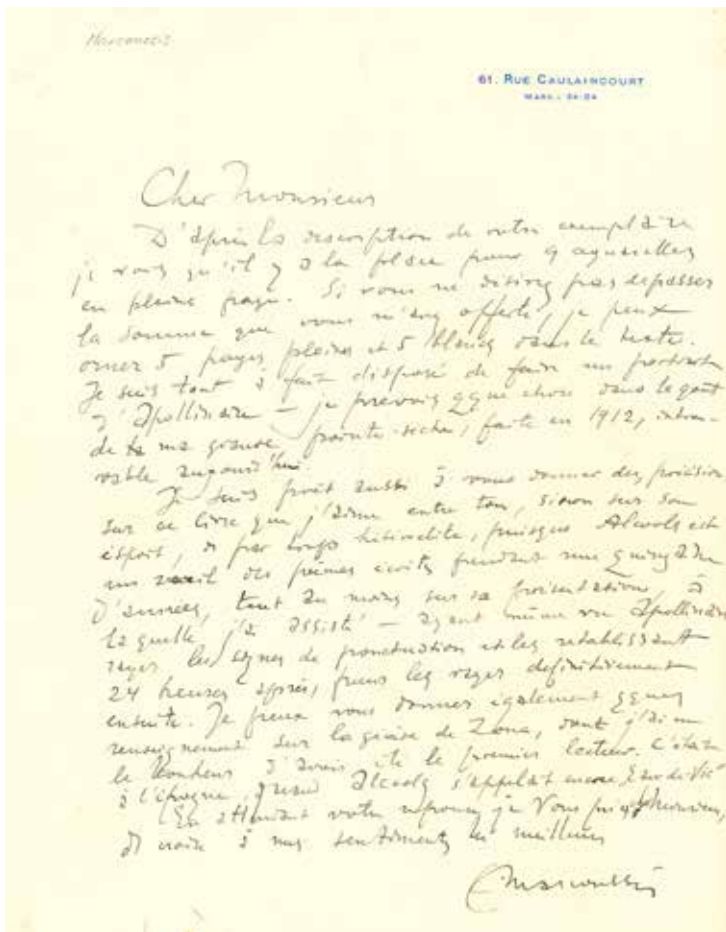 Marcoussis
61. RUE CAULAINCOURT
MARC. 54-24
Cher Monsieur
D'après la description de votre exemplaire
je vois qu'il y a la place pour 9 aquarelles
en pleine page. Si vous ne désirez pas dépasser
la somme que vous m'avez offerte, je peux
orner 5 pages pleines et 5 blancs dans le texte.
Je suis tout à fait disposé de faire un portrait
d'Apollinaire — je prévois qque chose dans le goût
de ma grande pointe-sèche, faite en 1912, introu-
vable aujourd'hui.
Je suis prêt aussi à vous donner des précisions
sur ce livre que j'aime entre tous, sinon sur son
esprit, puisque Alcools est
un recueil des poèmes écrits pendant une quinzaine
d'années, tout au moins sur sa présentation, à
laquelle j'ai assisté — ayant même vu Apollinaire
rayer les signes de ponctuation et les rétablissant
24 heures après, puis les rayer définitivement
ensuite. Je peux vous donner également qques
renseignements sur la genèse de Zone, dont j'ai eu
le bonheur d'avoir été le premier lecteur. C'était
à l'époque, quand Alcools s'appelait encore Eau de Vie
En attendant votre réponse je vous prie, Monsieur,
de croire à mes sentiments les meilleurs
Marcoussis